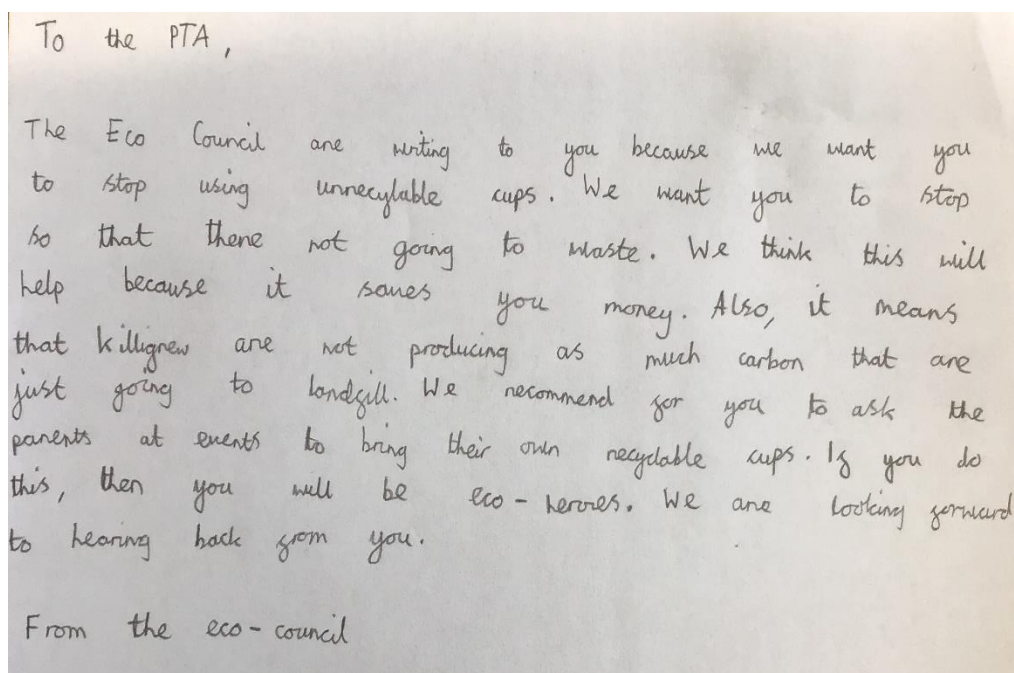 To the PTA,
The Eco Council are writing to you because we want you
to stop using unrecylable cups. We want you to stop
so that there not going to waste. We think this will
help because it saves you money. Also, it means
that Killigrew are not producing as much carbon that are
just going to landfill. We recommend for you to ask the
parents at events to bring their own recyclable cups. If you do
this, then you will be eco-heroes. We are looking forward
to hearing back from you.
From the eco-council